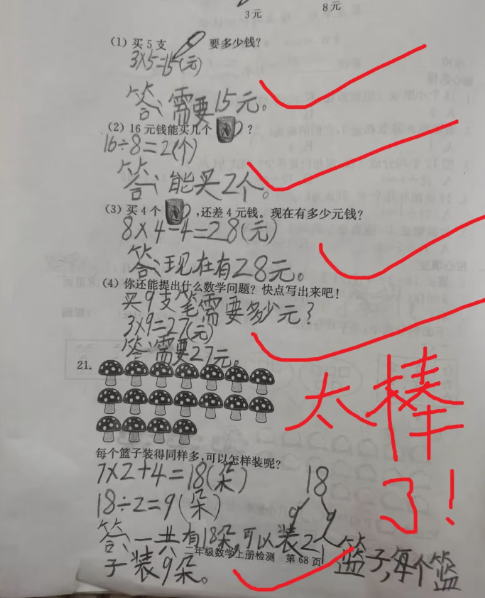 3元 8元
(1) 买5支 要多少钱?
3×5=15(元)
答:需要15元。
(2) 16元钱能买几个 ?
16÷8=2(个)
答:能买2个。
(3) 买4个 ,还差4元钱。现在有多少元钱?
8×4-4=28(元)
答:现在有28元。
(4) 你还能提出什么数学问题? 快点写出来吧!
买9支笔需要多少元?
3×9=27(元)
答:需要27元。
21.
太棒
了!
每个篮子装得同样多,可以怎样装呢?
7×2+4=18(朵)
18
18÷2=9(朵)
9 9
答:一共有18朵,可以装2个篮子,每个篮
二年级数学上册检测 第68页
子装9朵。